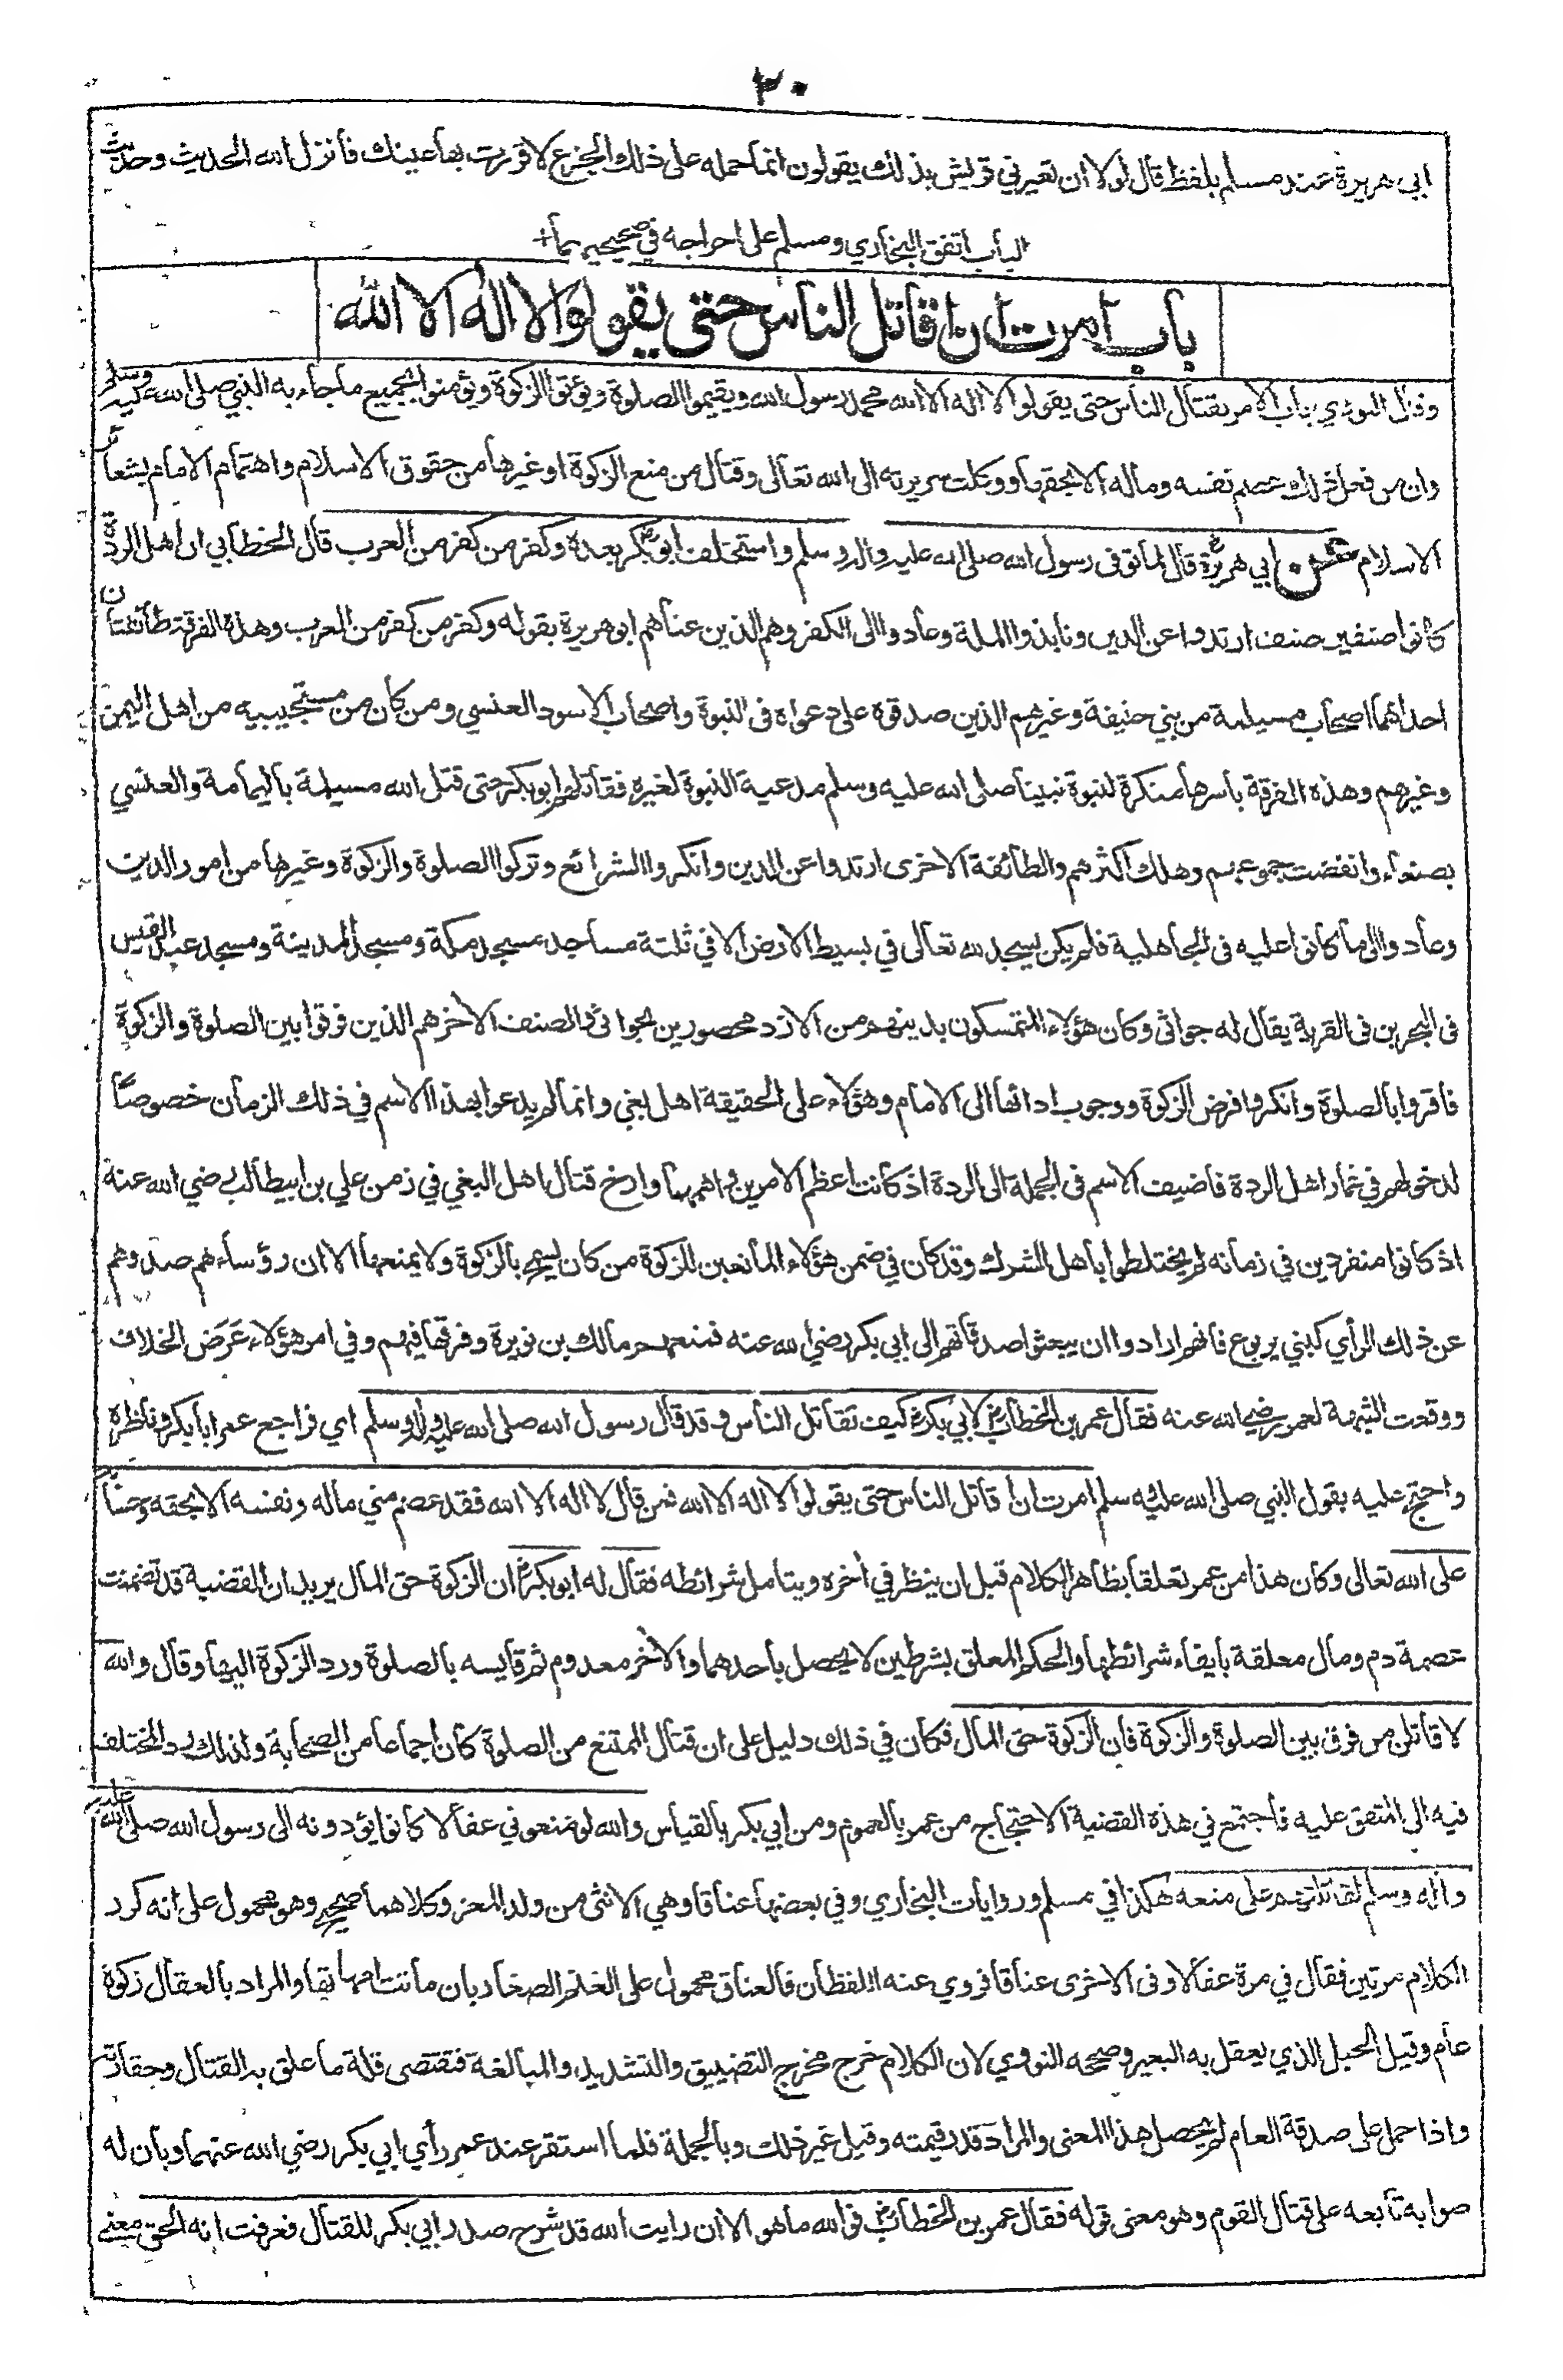 ٣٠
ابي هريرة عند مسلم بلفظ قال لولا ان تعيرني قريش بذلك يقولون انما حمله على ذلك الجزع لاقررت بها عينك فانزل الله الحديث وحديث
الباب اتفق البخاري ومسلم على اخراجه في صحيحيهما
باب امرت ان اقاتل الناس حتى يقولوا لا اله الا الله
وقال النووي باب الامر بقتال الناس حتى يقولوا لا اله الا الله محمد رسول الله ويقيموا الصلوة ويؤتوا الزكوة ويؤمنوا بجميع ما جاء به النبي صلى الله عليه وسلم
وان من فعل ذلك عصم نفسه وماله الا بحقها ووكلت سريرته الى الله تعالى وقتال من منع الزكوة او غيرها من حقوق الاسلام واهتمام الامام بشعائر
الاسلام عن ابي هريرة قال لما توفى رسول الله صلى الله عليه واله وسلم واستخلف ابو بكر بعده وكفر من كفر من العرب قال الخطابي ان اهل الردة
كانوا صنفين صنف ارتدوا عن الدين ونابذوا الملة وعادوا الى الكفر وهم الذين عناهم ابو هريرة بقوله وكفر من كفر من العرب وهذه الفرقة طائفتان
احداهما اصحاب مسيلمة من بني حنيفة وغيرهم الذين صدقوه على دعواه فى النبوة واصحاب الاسود العنسي ومن كان من مستجيبيه من اهل اليمن
وغيرهم وهذه الفرقة باسرها منكرة لنبوة نبينا صلى الله عليه وسلم مدعية النبوة لغيره فقاتلهم ابو بكر حتى قتل الله مسيلمة باليمامة والعنسي
بصنعاء وانفضت جموعهم وهلك اكثرهم والطائفة الاخرى ارتدوا عن الدين وانكروا الشرائع وتركوا الصلوة والزكوة وغيرها من امور الدين
وعادوا الى ما كانوا عليه فى الجاهلية فلم يكن يسجد لله تعالى في بسيط الارض الا في ثلثة مساجد مسجد مكة ومسجد المدينة ومسجد عبد القيس
فى البحرين فى القرية يقال له جواثى وكان هؤلاء المتمسكون بدينهم من الازد محصورين بجواثى والصنف الاخر هم الذين فرقوا بين الصلوة والزكوة
فاقروا بالصلوة وانكروا فرض الزكوة ووجوب ادائها الى الامام وهؤلاء على الحقيقة اهل بغي وانما لم يدعوا بهذا الاسم في ذلك الزمان خصوصًا
لدخولهم في غمار اهل الردة فاضيف الاسم فى الجملة الى الردة اذ كانت اعظم الامرين واهمهما وارخ قتال اهل البغي في زمن علي بن ابيطالب رضي الله عنه
اذ كانوا منفردين في زمانه لم يختلطوا باهل الشرك وقد كان في ضمن هؤلاء المانعين للزكوة من كان يسمح بالزكوة ولا يمنعها الا ان رؤساءهم صدوهم
عن ذلك الرأي كبني يربوع فانهم ارادوا ان يبعثوا صدقاتهم الى ابي بكر رضي الله عنه فمنعهم مالك بن نويرة وفرقها فيهم وفي امر هؤلاء عَرَض الخلاف
ووقعت الشبهة لعمر رضي الله عنه فقال عمر بن الخطاب لابي بكر كيف تقاتل الناس وقد قال رسول الله صلى الله عليه واله وسلم اي فراجع عمر ابا بكر وناظره
واحتج عليه بقول النبي صلى الله عليه سلم امرت ان اقاتل الناس حتى يقولوا لا اله الا الله فمن قال لا اله الا الله فقد عصم مني ماله ونفسه الا بحقه وحسابه
على الله تعالى وكان هذا من عمر تعلقا بظاهر الكلام قبل ان ينظر في اخره ويتامل شرائطه فقال له ابو بكر ان الزكوة حق المال يريد ان القضية قد تضمنت
عصمة دم ومال معلقة بايفاء شرائطها والحكم المعلق بشرطين لا يحصل باحدهما والاخر معدوم ثم قايسه بالصلوة ورد الزكوة اليها وقال والله
لاقاتلن من فرق بين الصلوة والزكوة فان الزكوة حق المال فكان في ذلك دليل على ان قتال الممتنع من الصلوة كان اجماعا من الصحابة ولذلك رد المختلف
فيه الى المتفق عليه فاجتمع في هذه القضية الاحتجاج من عمر بالعموم ومن ابي بكر بالقياس والله لو منعوني عقالا كانوا يؤدونه الى رسول الله صلى الله عليه
واله وسلم لقاتلتهم على منعه هكذا في مسلم وروايات البخاري وفي بعضها عناقا وهي الانثى من ولد المعز وكلاهما صحيح وهو محمول على انه كرر
الكلام مرتين فقال في مرة عقالا وفى الاخرى عناقا فروي عنه اللفظان فالعناق محمول على الغنم الصغار بان ماتت امهاتها والمراد بالعقال زكوة
عام وقيل الحبل الذي يعقل به البعير وصححه النووي لان الكلام خرج مخرج التضييق والتشديد والمبالغة فتقتضى قلة ما علق به القتال وحقارته
واذا حمل على صدقة العام لم يحصل هذا المعنى والمراد قدر قيمته وقيل غير ذلك وبالجملة فلما استقر عند عمر رأي ابي بكر رضي الله عنهما وبان له
صوابه تابعه على قتال القوم وهو معنى قوله فقال عمر بن الخطاب فوالله ما هو الا ان رايت الله قد شرح صدر ابي بكر للقتال فعرفت انه الحق معنى